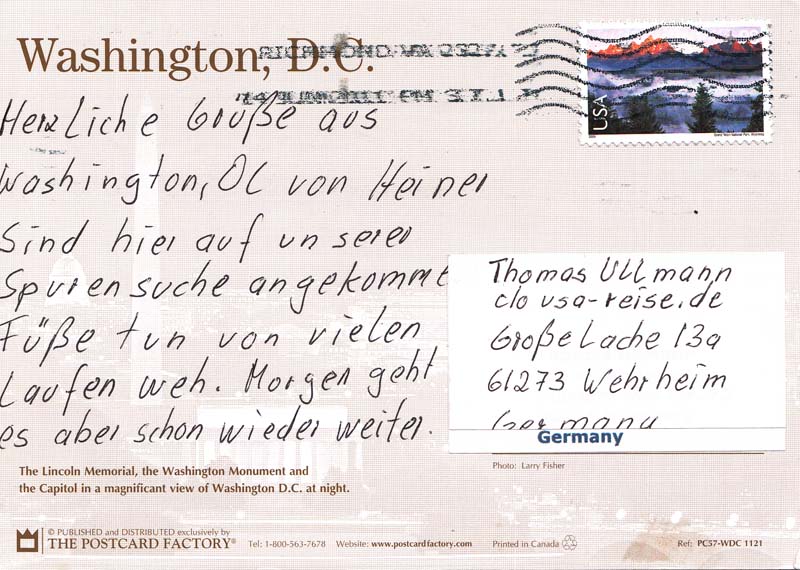 Washington, D.C.
Herzliche Große aus
Washington, DC von Heiner
Sind hier auf unserer
Spurensuche angekomme
Füße tun von vielen
Laufen weh. Morgen geht
es aber schon wieder weiter.
USA
Thomas Ullmann
c/o usa-reise.de
Große Lache 13a
61273 Wehrheim
Germany
Germany
The Lincoln Memorial, the Washington Monument and
the Capitol in a magnificant view of Washington D.C. at night.
Photo: Larry Fisher
© PUBLISHED and DISTRIBUTED exclusively by
THE POSTCARD FACTORY®
Tel: 1-800-563-7678 Website: www.postcardfactory.com Printed in Canada Ref: PC57-WDC 1121